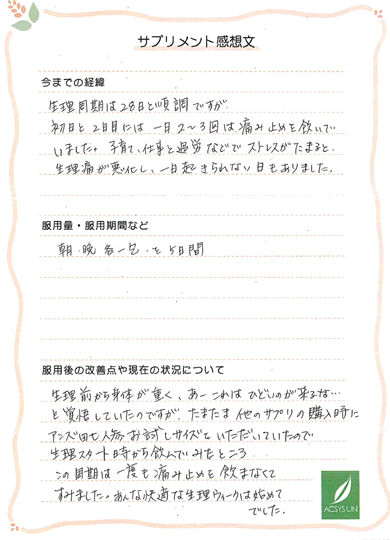 サプリメント感想文
今までの経緯
生理周期は28日と順調ですが
初日と2日目には一日2～3回は痛み止めを飲いで
いました。子育て、仕事と過労などでストレスがたまると、
生理痛が悪化し、一日起きられない日もありました。
服用量・服用期間など
朝・晩 各一包・を5日間
服用後の改善点や現在の状況について
生理前から身体が重く、あーこれはひどいのが来るな…
と覚悟していたのですが、たまたま他のサプリの購入時に
アンズ田七人参お試しサイズをいただいていたので
生理スタート時から飲んでみたところ
この周期は一度も痛み止めを飲まなくて
すみました。あんな快適な生理ウィークは始めて
でした。
ACSYSUN